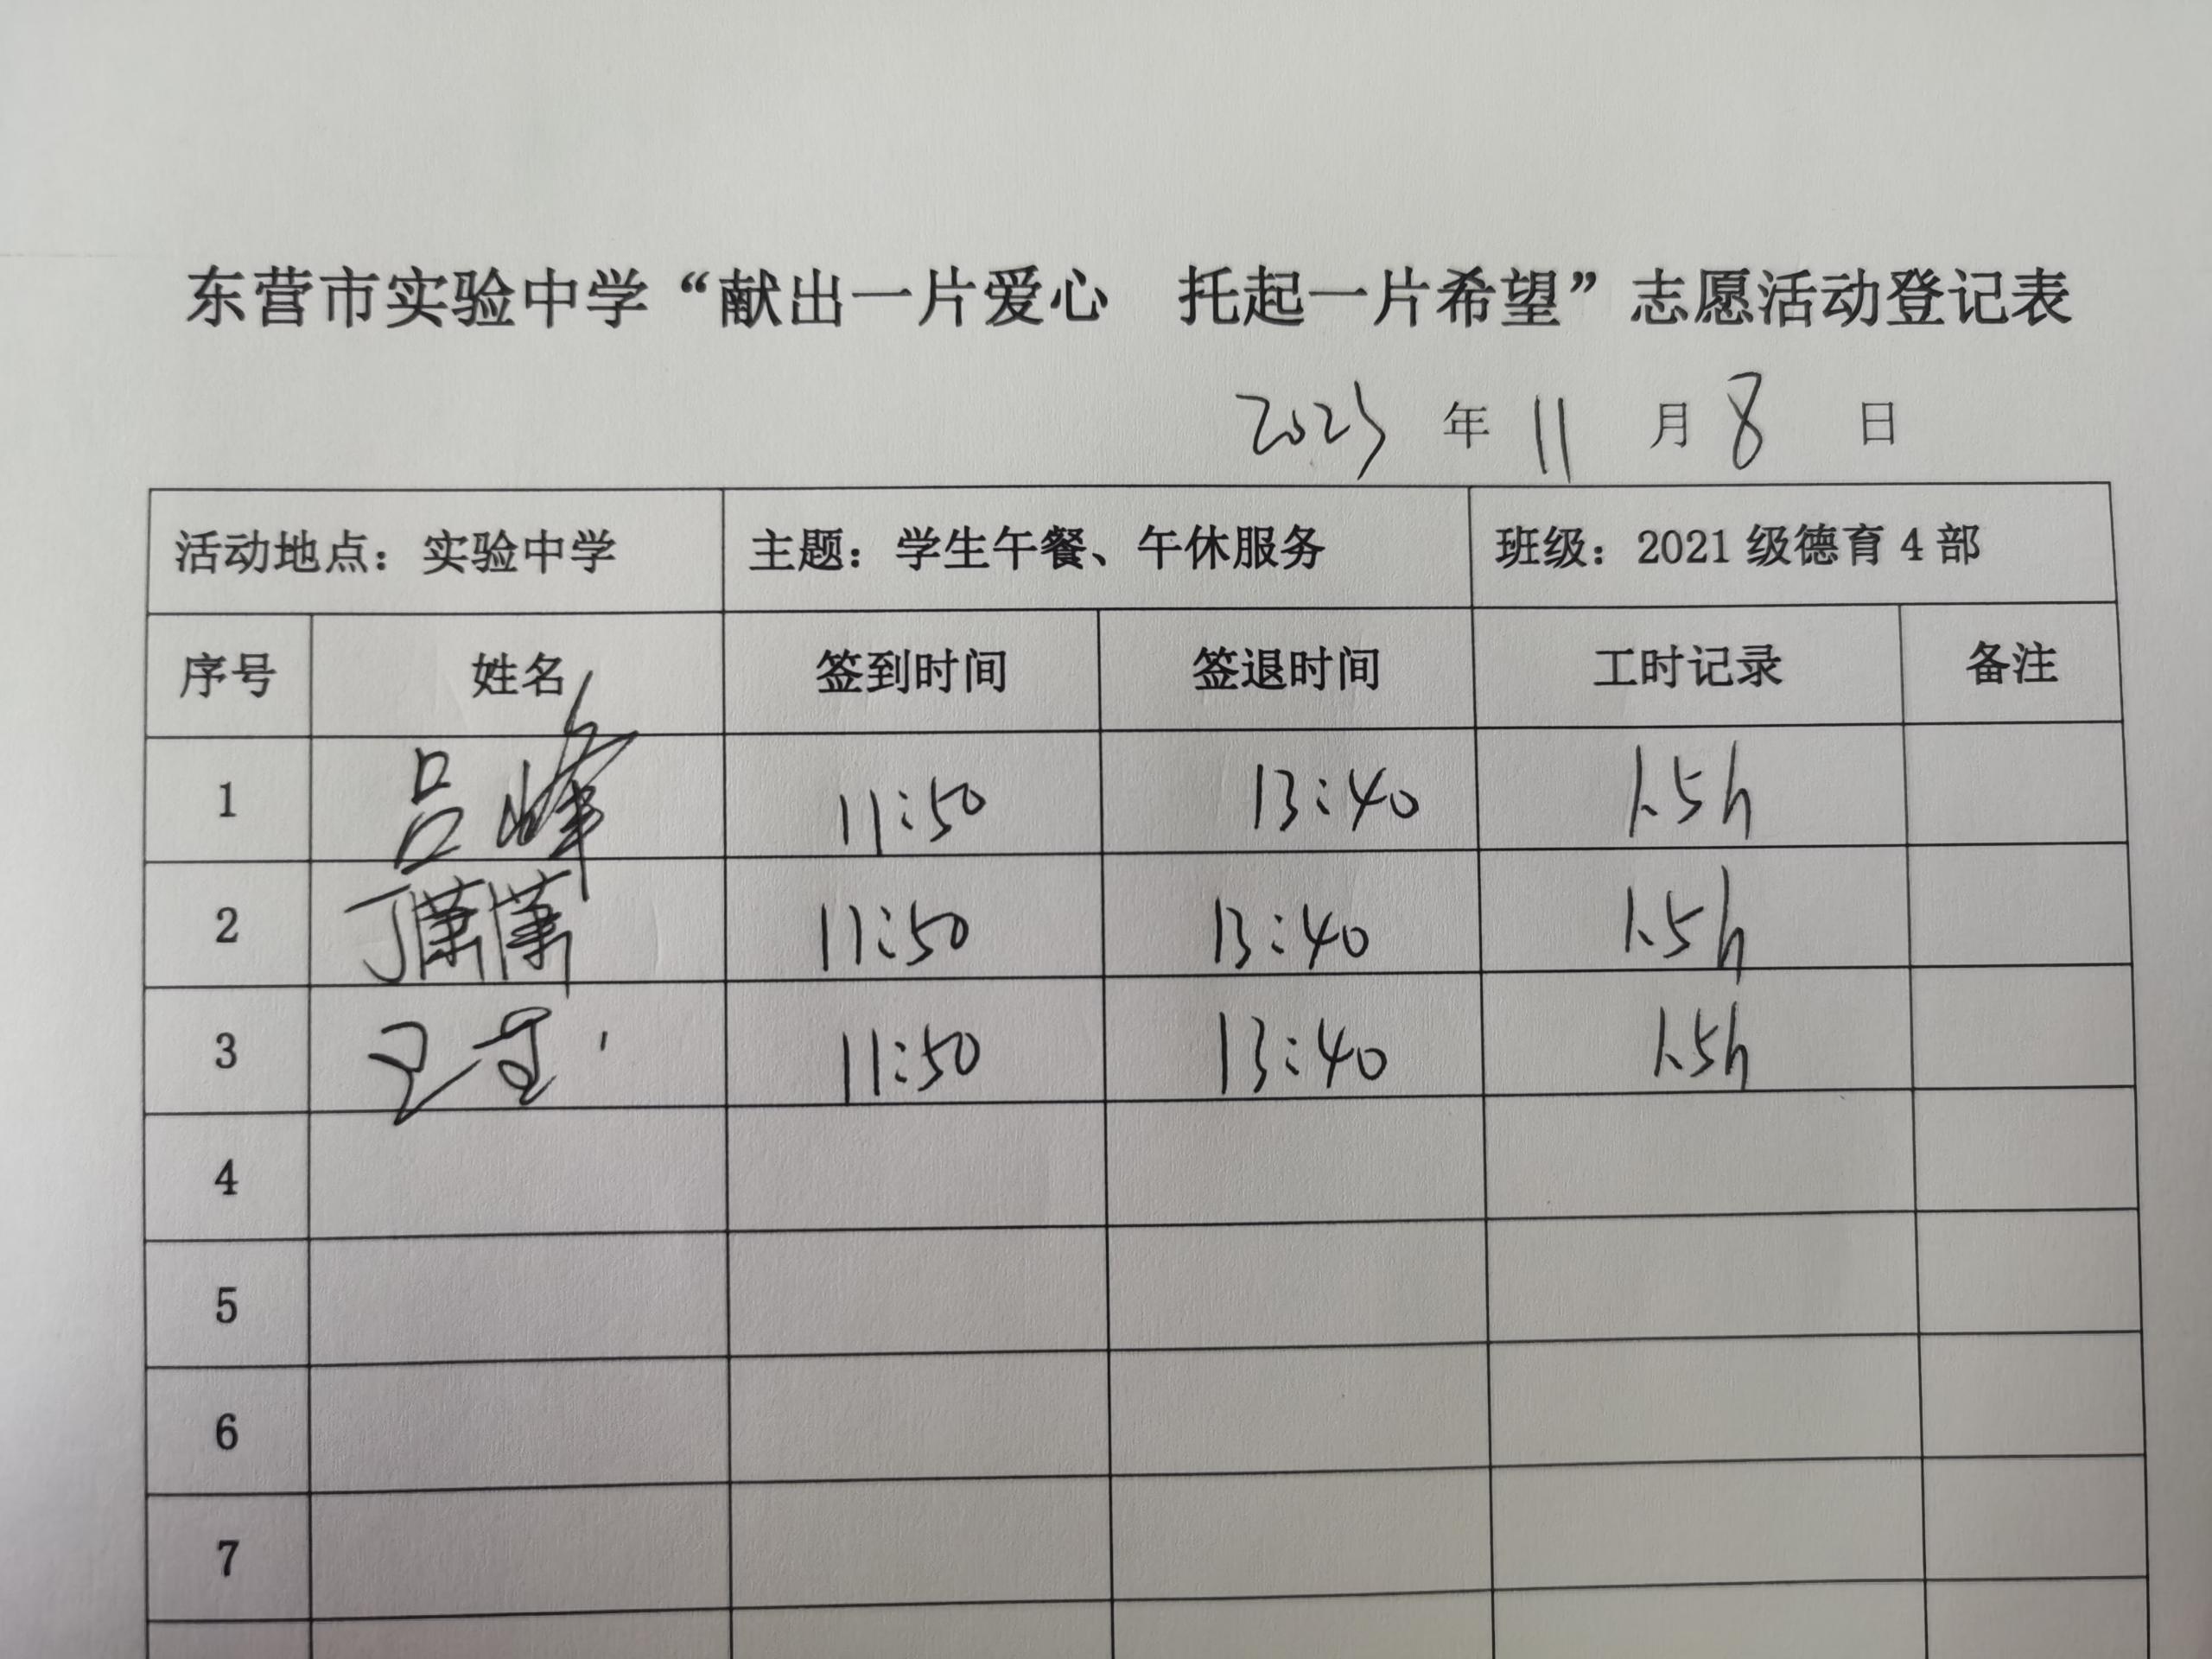 东营市实验中学“献出一片爱心 托起一片希望”志愿活动登记表
2023 年 11 月 8 日
活动地点：实验中学 主题：学生午餐、午休服务 班级：2021 级德育 4 部
序号 姓名 签到时间 签退时间 工时记录 备注
1 吕峰 11:50 13:40 1.5h
2 丁潇潇 11:50 13:40 1.5h
3 11:50 13:40 1.5h
4
5
6
7